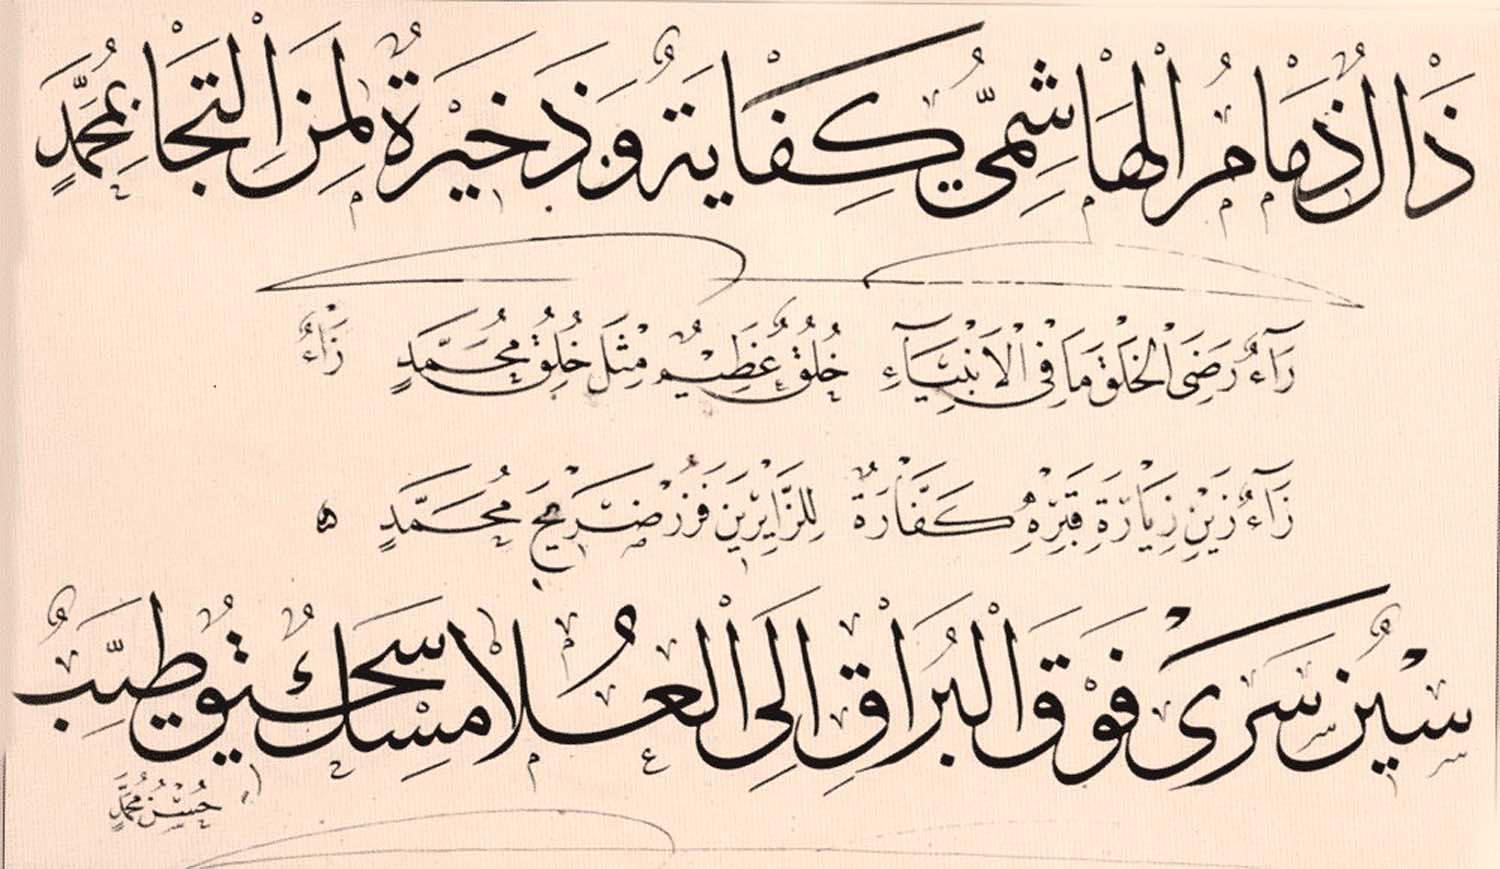 ذَالٌ ذِمَامُ الْهَاشِمِيِّ كِفَايَةٌ وَذَخِيْرَةٌ لِمَنِ الْتَجَا بِمُحَمَّدٍ
رَآءٌ رَضَى الْخَلْقِ مَا فِي الْاَنْبِيَآءِ خُلُقٌ عَظِيْمٌ مِثْلَ خُلُقِ مُحَمَّدٍ زَاءٌ
زَآءٌ زَيْنِ زِيَارَةِ قَبْرِهِ كَفَّارَةٌ لِلزَّايِرِيْنَ فَزُرْ ضَرِيْحَ مُحَمَّدٍ ه
سِيْنٌ سَرَى فَوْقَ الْبُرَاقِ اِلَى الْعُلَا مِسْكٌ سَحِيْقٌ طَيِّبٌ
حُسْنُ مُحَمَّدٍ